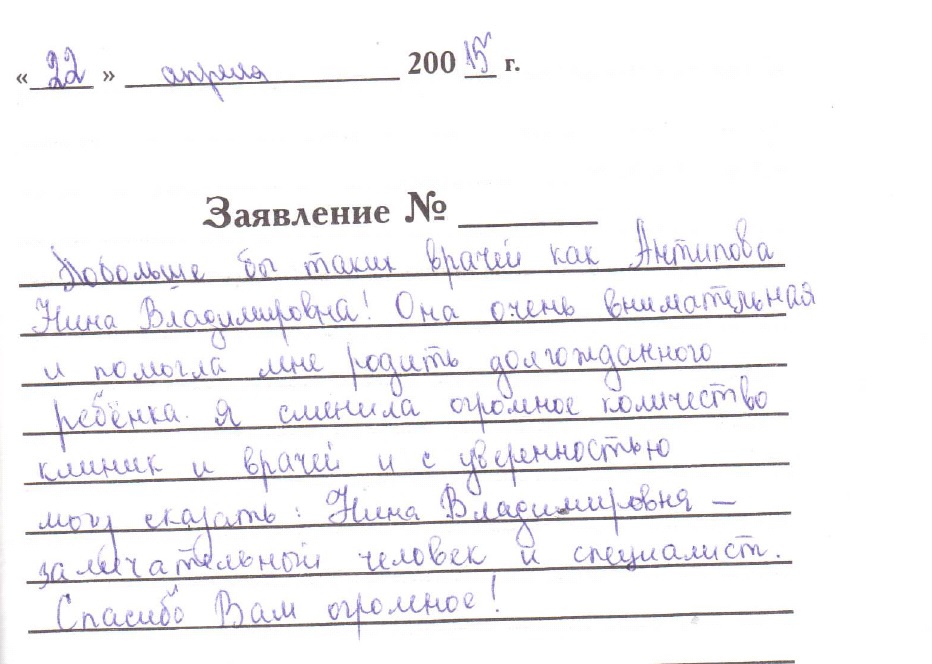 « 22 » апреля 200 15 г.
Заявление №
Побольше бы таких врачей как Антипова
Нина Владимировна! Она очень внимательная
и помогла мне родить долгожданного
ребёнка. Я сменила огромное количество
клиник и врачей и с уверенностью
могу сказать: Нина Владимировня –
замечательный человек и специалист.
Спасибо Вам огромное!